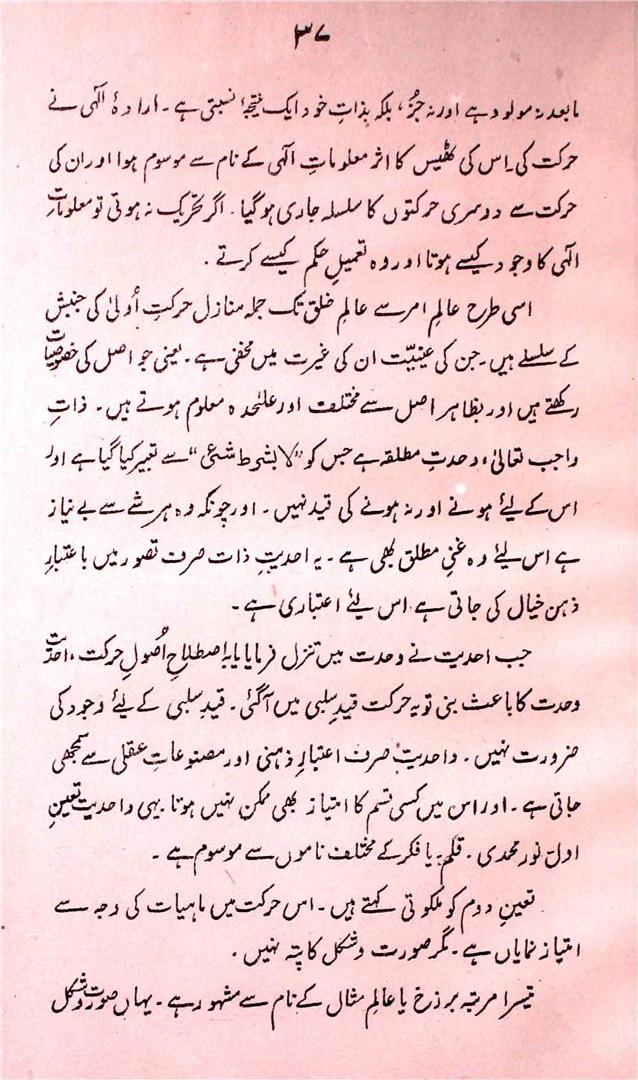 ۳۷
مابعد نہ مولود ہے اور نہ جُز، بلکہ بذاتِ خود ایک نتیجۂ نسبتی ہے۔ ارادۂ الٰہی نے
حرکت کی۔ اس کی ٹھیس کا اثر معلوماتِ الٰہی کے نام سے موسوم ہوا اور ان کی
حرکت سے دوسری حرکتوں کا سلسلہ جاری ہو گیا۔ اگر تحریک نہ ہوتی تو معلوماتِ
الٰہی کا وجود کیسے ہوتا اور وہ تعمیلِ حکم کیسے کرتے۔
اسی طرح عالمِ امر سے عالمِ خلق تک جملہ منازل حرکتِ اُولیٰ کی جنبش
کے سلسلے ہیں۔ جن کی عینیّت ان کی غیرت میں مخفی ہے۔ یعنی جو اصل کی خصوصیات
رکھتے ہیں اور بظاہر اصل سے مختلف اور علیٰحدہ معلوم ہوتے ہیں۔ ذاتِ
واجب تعالیٰ، وحدتِ مطلقہ ہے جس کو "لا بشرط شئ" سے تعبیر کیا گیا ہے اور
اس کے لیٔے ہونے اور نہ ہونے کی قید نہیں۔ اور چونکہ وہ ہر شے سے بے نیاز
ہے اس لیٔے وہ غنیِ مطلق بھی ہے۔ یہ احدیتِ ذات صرف تصور میں باعتبارِ
ذہن خیال کی جاتی ہے اس لیٔے اعتباری ہے۔
جب احدیت نے وحدت میں تنزل فرمایا یا بہ اصطلاحِ اُصولِ حرکت، احدیت
وحدت کا باعث بنی تو یہ حرکت قیدِ سلبی میں آگئی۔ قیدِ سلبی کے لیٔے وجود کی
ضرورت نہیں۔ واحدیت صرف اعتبارِ ذہنی اور مصنوعاتِ عقلی سے سمجھی
جاتی ہے۔ اور اس میں کسی قسم کا امتیاز بھی ممکن نہیں ہوتا یہی واحدیت تعینِ
اول نورِ محمدی۔ قلم۔ یا فکر کے مختلف ناموں سے موسوم ہے۔
تعینِ دوم کو ملکوتی کہتے ہیں۔ اس حرکت میں ماہیات کی وجہ سے
امتیاز نمایاں ہے۔ مگر صورت و شکل کا پتہ نہیں۔
تیسرا مرتبہ برزخ یا عالمِ مثال کے نام سے مشہور ہے۔ یہاں صورت و شکل